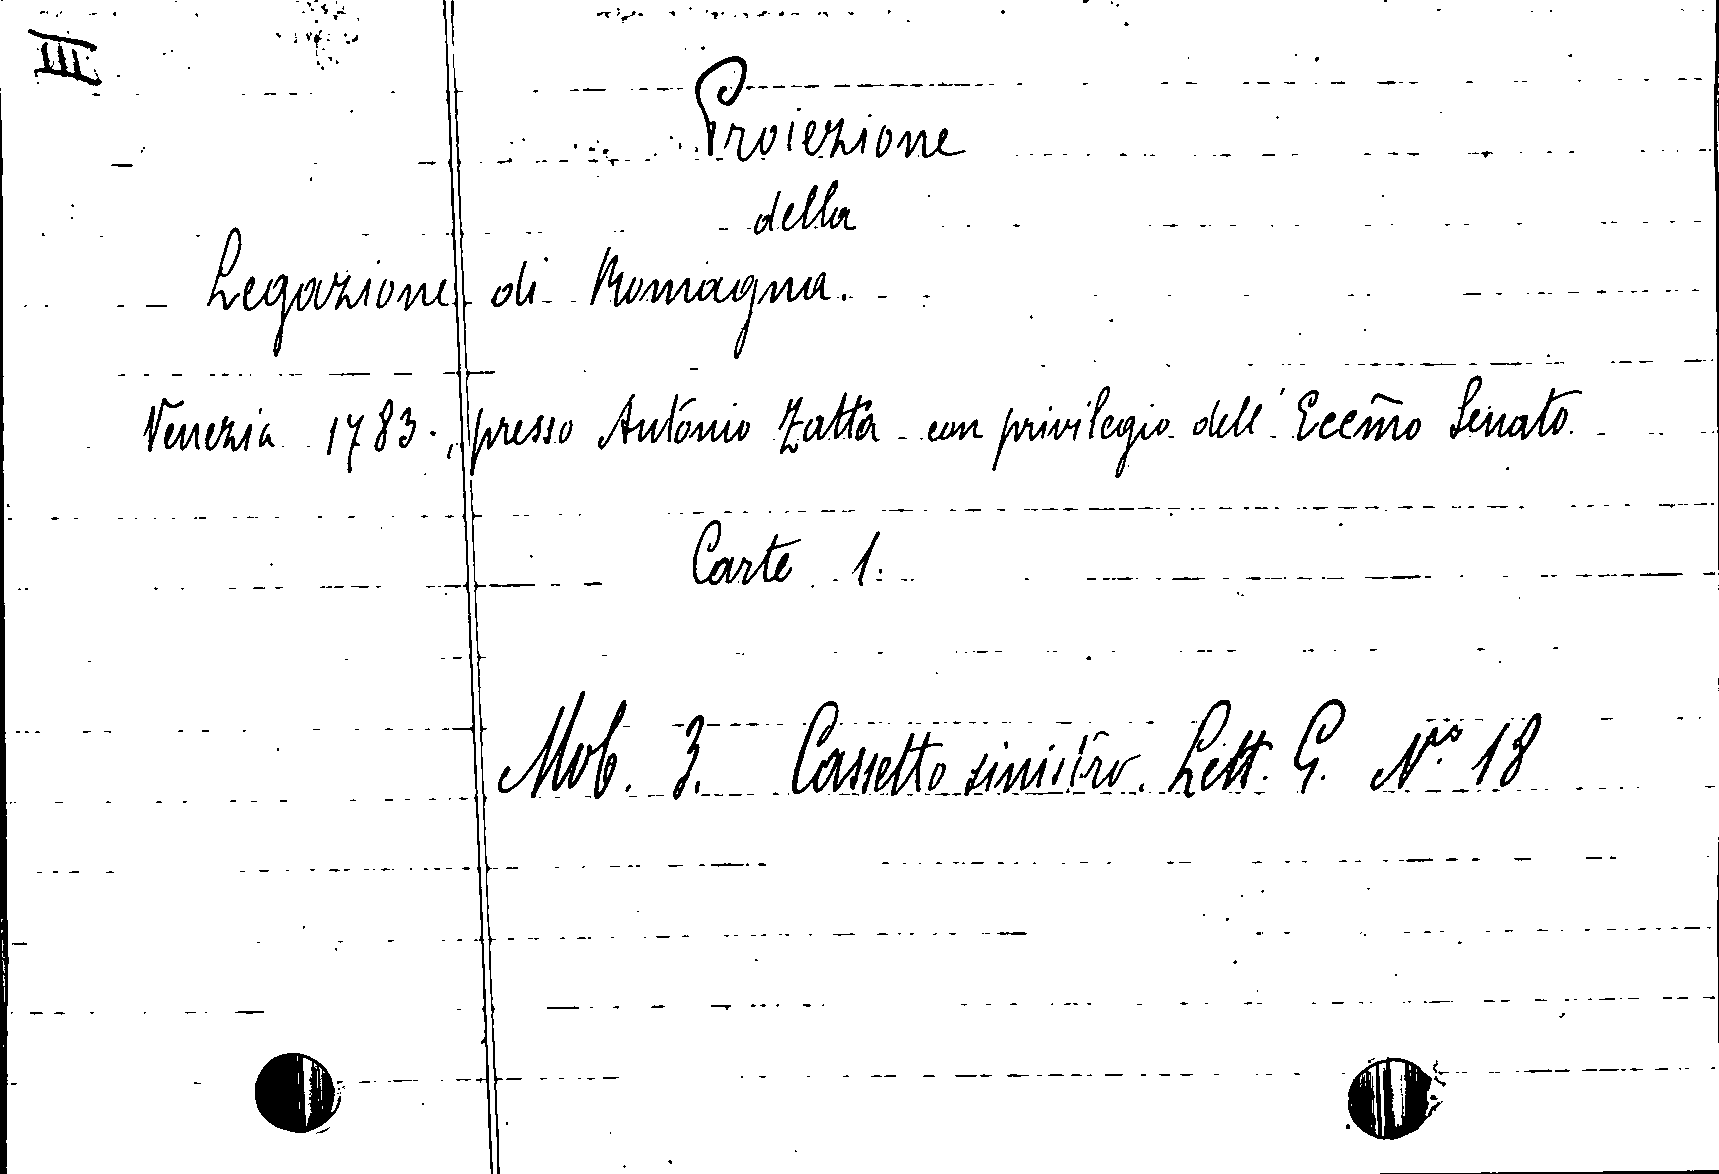 III
Proiezione
della
Legazione di Romagna.
Venezia 1783., presso Antonio Zatta con privilegio dell' Eccm̃o Senato
Carte 1.
Mob. 3. Cassetto sinistro. Lett. G. N.º 18